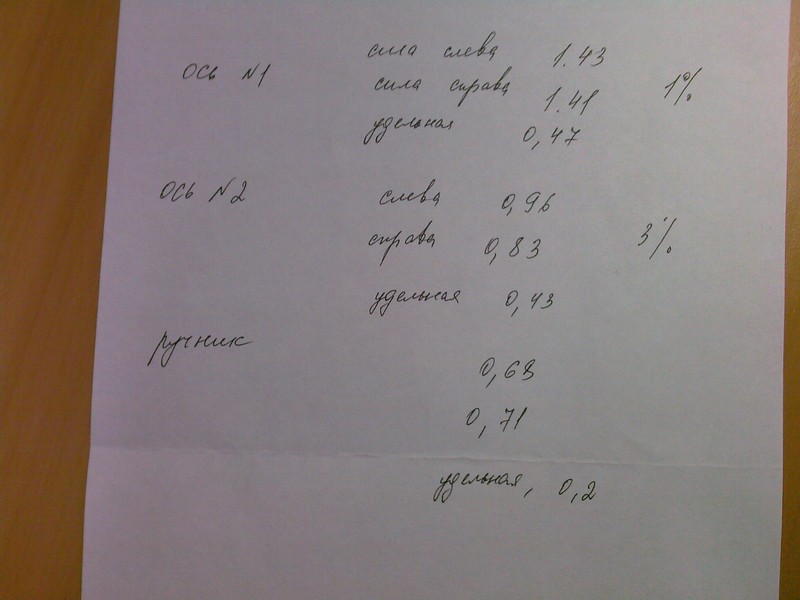 ось N1 сила слева 1.43
сила справа 1.41 1%
удельная 0,47
ось N2 слева 0,96
справа 0,83 3%
удельная 0,43
ручник
0,68
0,71
удельная, 0,2